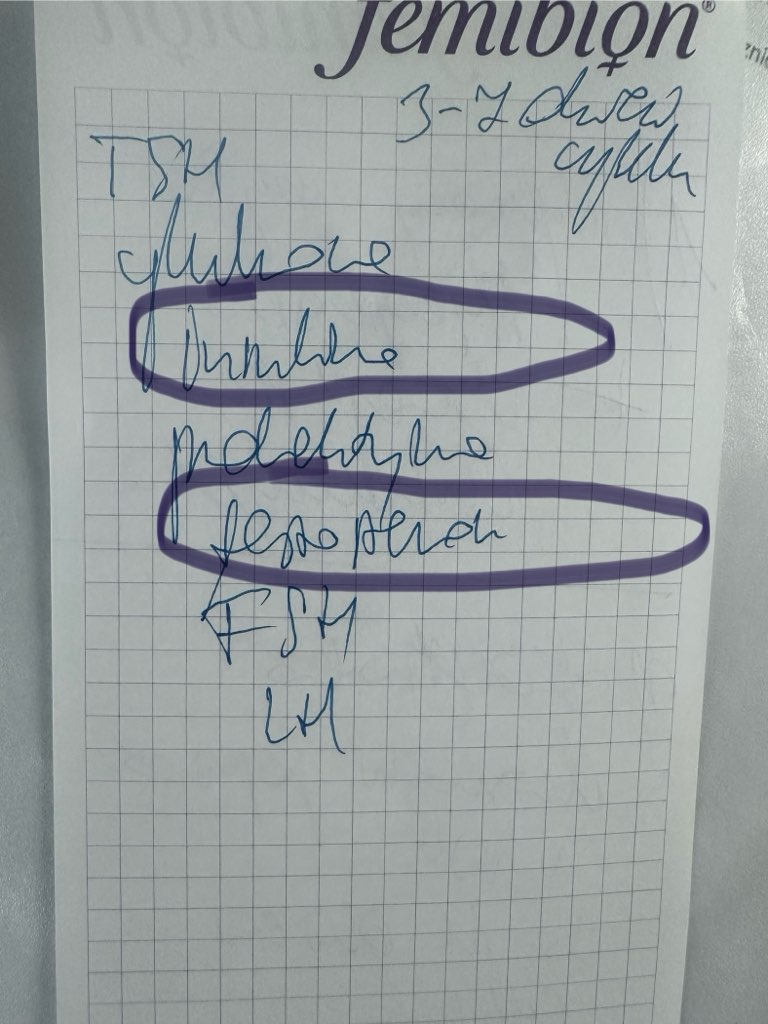 femibion®
3-7 dzień
cyklu
TSH
glukoza
insulina
prolaktyna
testosteron
FSH
LH